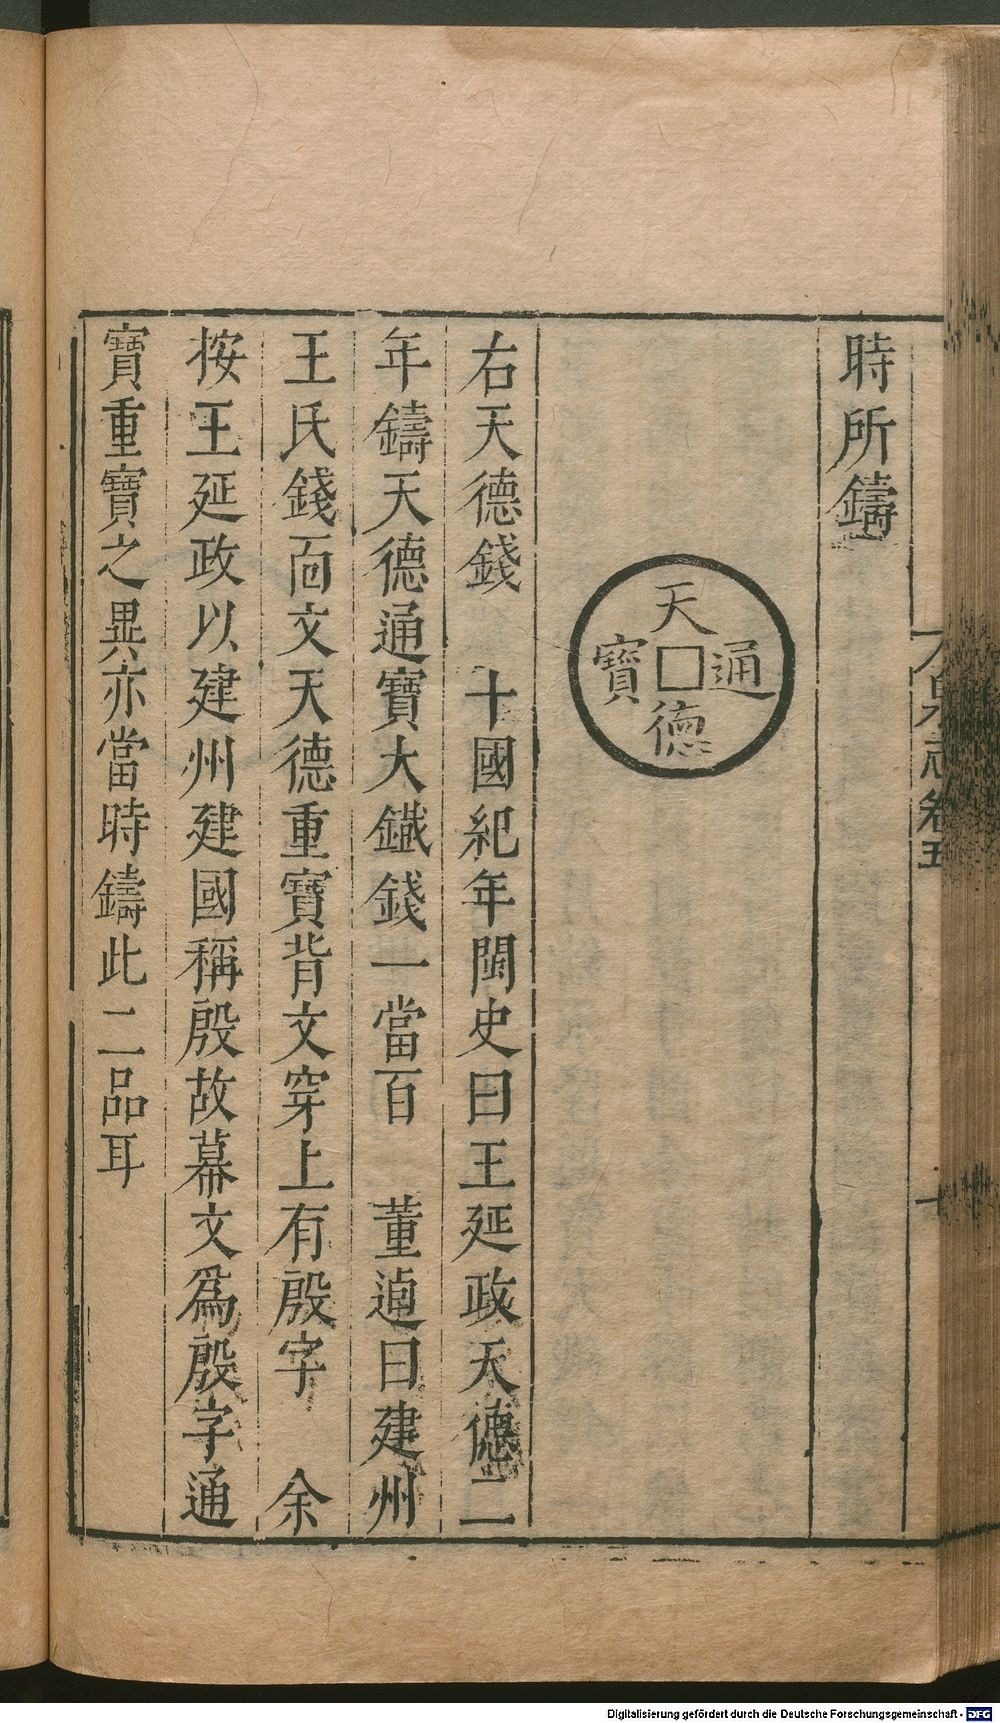 時所鑄
天
通
德
寶
右天德錢　十國紀年閩史曰王延政天德二
年鑄天德通寶大鐵錢一當百　董逌曰建州
王氏錢面文天德重寶背文穿上有殷字　余
按王延政以建州建國稱殷故幕文爲殷字通
寶重寶之異亦當時鑄此二品耳
志卷五
Digitalisierung gefördert durch die Deutsche Forschungsgemeinschaft - DFG